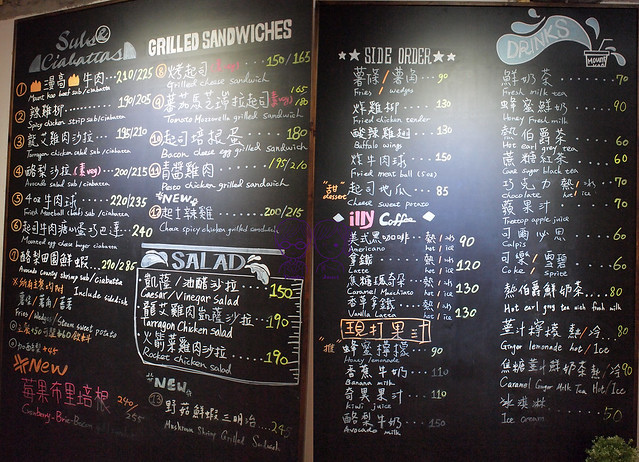 Subs & Ciabattas
① 漫高牛肉 210/225
Mount Kao beef sub/ciabatta
② 辣雞柳 190/205
Spicy chicken strip sub/ciabatta
③ 龍艾雞肉沙拉 195/210
Tarragon chicken salad sub/ciabatta
④ 酪梨沙拉(素veg) 200/215
Avocado salad sub/ciabatta
⑤ 牛肉球 220/235
Fried meatball sub/ciabatta
⑥ 起司牛肉 巧巴達 240
burger ciabatta
⑦ 酪梨田園鮮蝦 270/285
Avocado country shrimp sub/ciabatta
Include sidedish
薯條/薯角/
Fries/Wedges/Sweet potato
New
莓果布里培根 240/255
Cranberry-Brie-Bacon
GRILLED SANDWICHES
⑧ 烤起司 150/165
Grilled cheese sandwich
⑨ 蕃茄馬芝瑞拉起司(素veg) 165/180
Tomato Mozzarella grilled sandwich
⑩ 起司培根蛋 180
Bacon cheese egg grilled sandwich
⑪ 青醬雞肉 195/210
Pesto chicken grilled sandwich
NEW
⑫ 起士辣雞 200/215
Cheese spicy chicken grilled sandwich
SALAD
凱薩/油醋沙拉 150
Caesar/Vinegar Salad
龍艾雞肉凱薩沙拉 190
Tarragon Chicken salad
火箭菜雞肉沙拉 190
Rocket chicken salad
NEW
⑬ 野菇鮮蝦三明治 245
Mushroom Shrimp Grilled Sandwich
SIDE ORDER
薯條/薯角 90
Fries / wedges
炸雞柳 130
Fried chicken tender
酸辣雞翅 130
Buffalo wings
炸牛肉球 150
Fried meat ball (5oz)
"甜" dessert 起司地瓜 85
Cheese sweet potato
illy Coffee
美式黑咖啡 熱/冰 90
Americano hot/ice
拿鐵 熱/冰 120
Latte hot/ice
焦糖瑪奇朵 熱/冰 130
Caramel Macchiato hot/ice
香草拿鐵 熱/冰 130
Vanilla Latte hot/ice
現打果汁
"推" 蜂蜜檸檬 90
Honey lemonade
香蕉牛奶 110
Banana milk
奇異果汁 110
Kiwi juice
酪梨牛奶 150
Avocado milk
DRINKS
MOUNT
鮮奶茶 70
Fresh milk tea
蜂蜜鮮奶 90
Honey Fresh milk
熱伯爵茶 60
Hot earl grey tea
蔗糖紅茶 60
Cane sugar black tea
巧克力 熱/冰 70
chocolate hot/ice
蘋果汁 70
Treetop apple juice
可爾必思 60
Calpis
可樂/雪碧 60
Coke / Sprite
熱伯爵鮮奶茶 80
Hot earl grey tea with fresh milk
薑汁檸檬 熱/冷 80
Ginger lemonade hot/Ice
焦糖薑汁鮮奶茶 熱/冷 90
Caramel Ginger Milk Tea Hot/Ice
冰淇淋 50
Ice cream